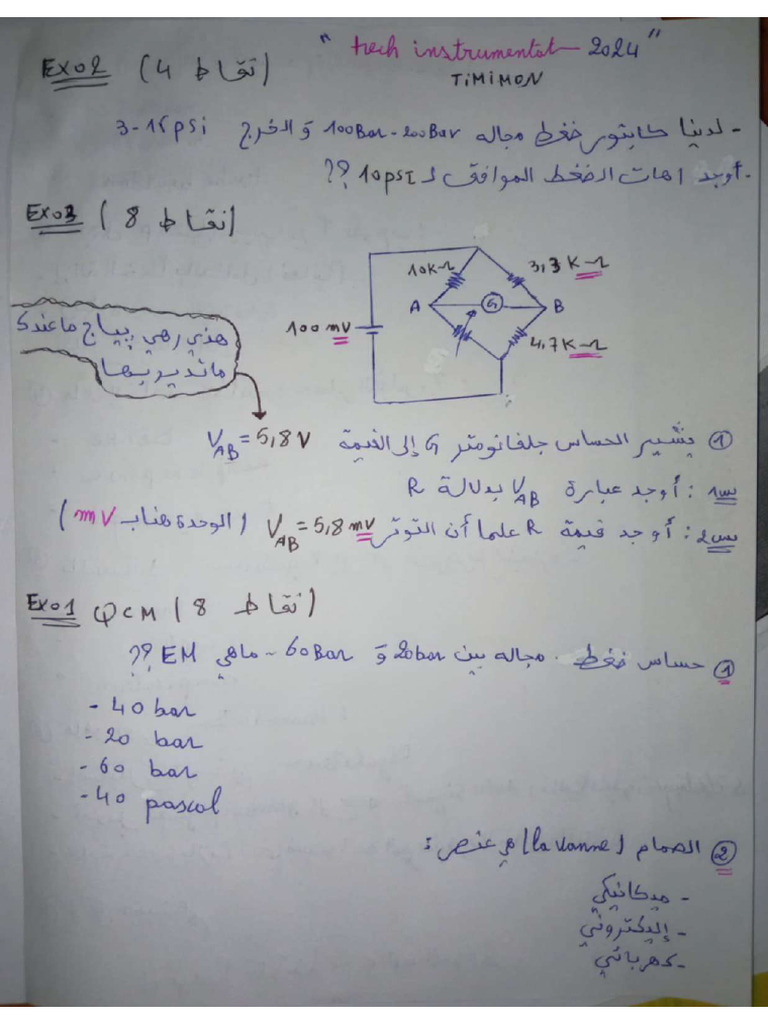 "tech instrumentat 2024"
TiMiMON
Exo2 (4 نقاط)
- لدينا كابتور ضغط مجاله 100Bar - 200Bar و الخرج 3-15psi
- أوجد اهات الضغط الموافق لـ 10psI ??
Exo3 (8 نقاط)
10KΩ
3,3 KΩ
A
G
B
100 mV
4,7KΩ
هذي رهي پياج ماعندك
ماتديريبها
① يشير الحساس جلفانومتر G إلى القيمة VAB = 5,8 V
س1 : أوجد عبارة VAB بدلالة R
س2 : أوجد قيمة R علما أن التوتر VAB = 5,8 mV (الوحدة هناب mV)
Exo1 QCM (8 نقاط)
① حساس ضغط مجاله بين 20bar و 60Bar - ماهي EM ??
- 40 bar
- 20 bar
- 60 bar
- 40 pascal
② الصمام (la vanne) هي عنصر :
- ميكانيكي
- إليكتروني
- كهربائي